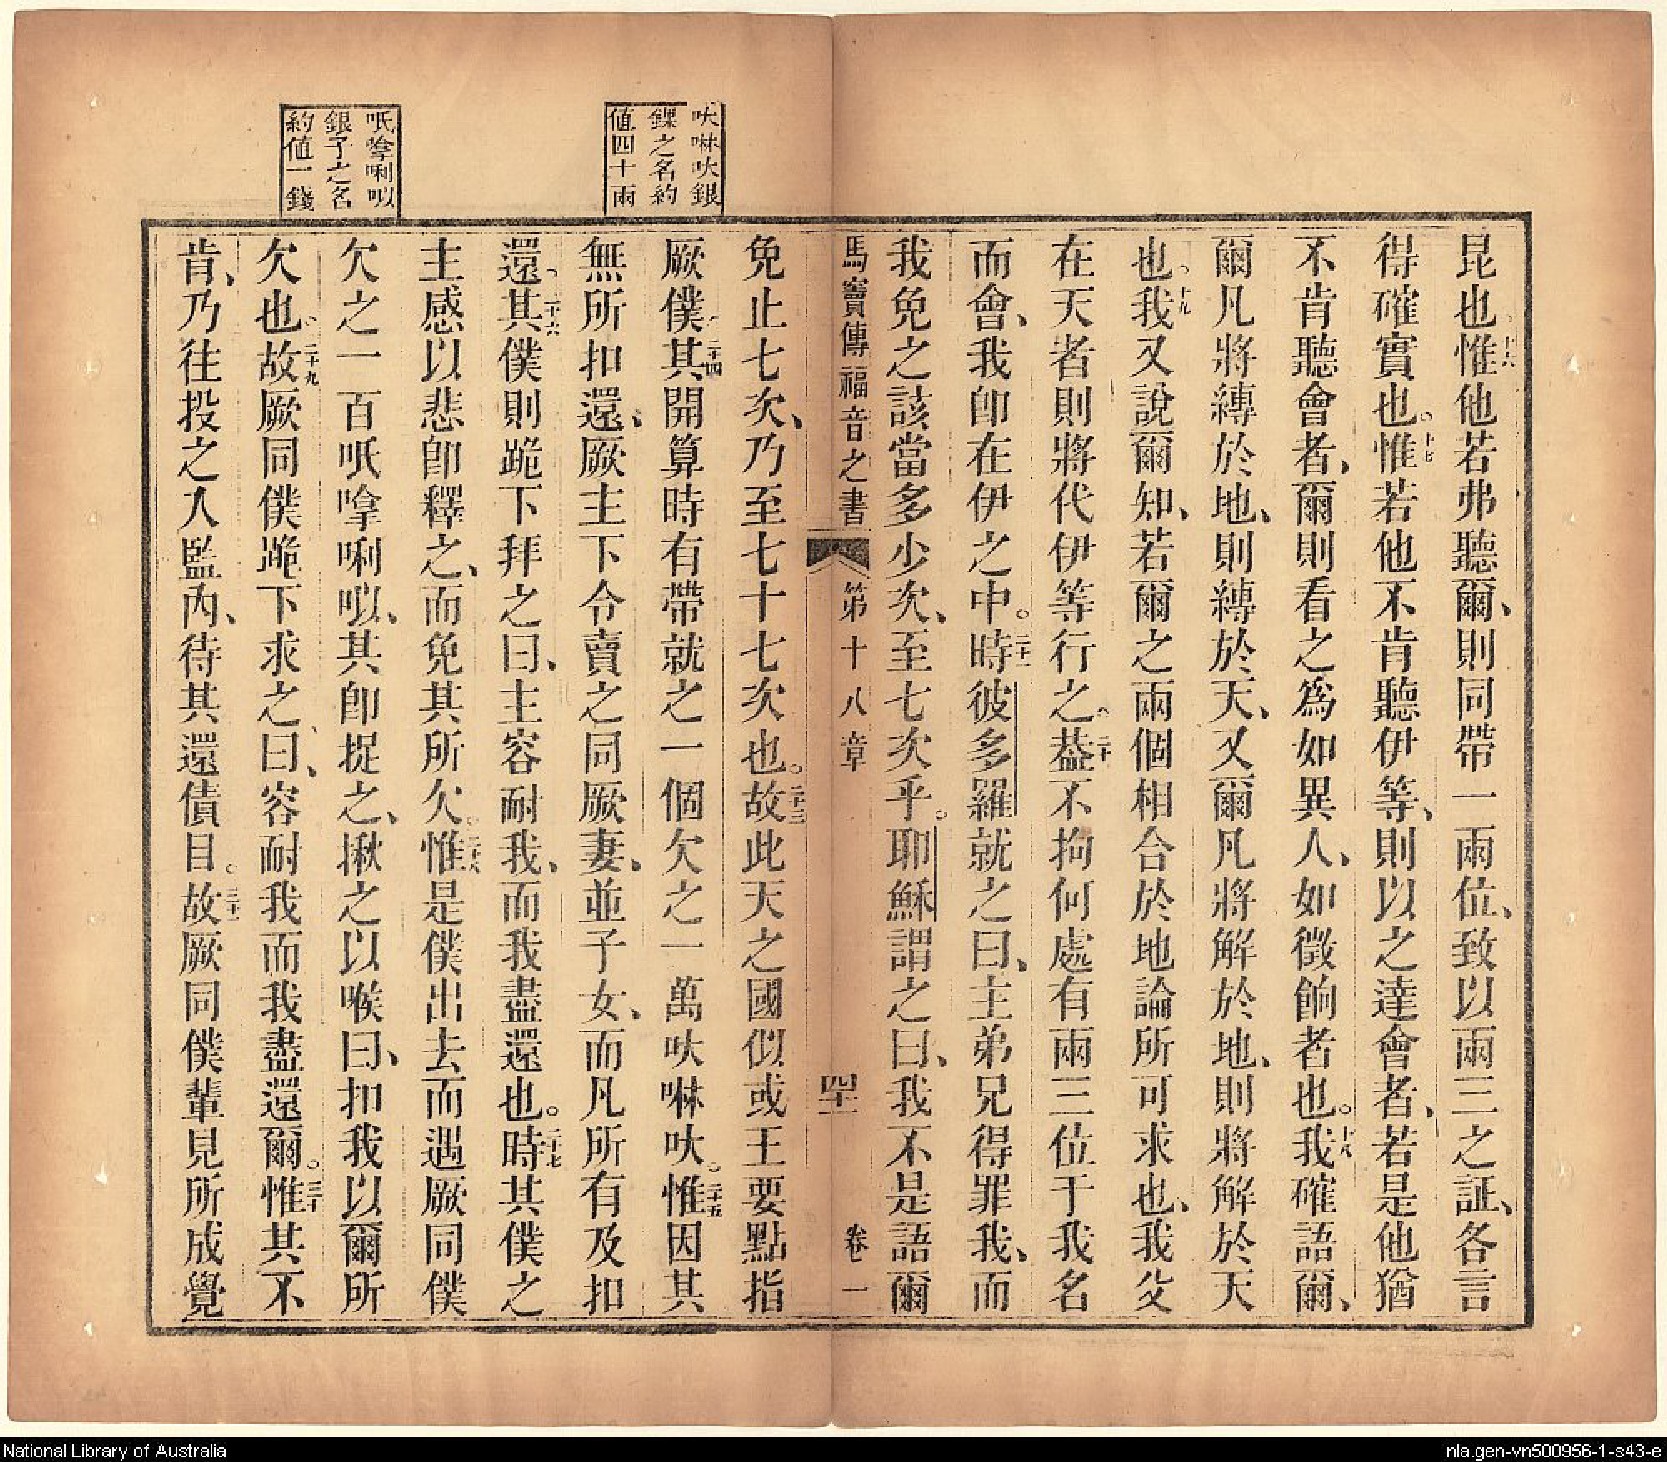 昆也十六惟他若弗聽爾、則同帶一兩位、致以兩三之証、各言
得確實也。十七惟若他不肯聽伊等、則以之達會者、若是他猶
不肯聽會者、爾則看之為如異人、如徵餉者也。十八我確語爾、
爾凡將縛於地、則縛於天、又爾凡將解於地、則將解於天
也。十九我又說爾知、若爾之兩個相合於地論所可求也、我父
在天者則將代伊等行之。二十葢不拘何處有兩三位于我名
而會、我卽在伊之中。二十一時彼多羅就之曰、主弟兄得罪我、而
我免之該當多少次、至七次乎。耶穌謂之曰、我不是語爾
馬竇傳福音之書 第十八章 四十一 卷一
免止七次、乃至七十七次也。二十三故此天之國似或王要點指
厥僕。二十四其開算時有帶就之一個欠之一萬吠啉吠。二十五惟因其
無所扣還、厥主下令賣之同厥妻、並子女、而凡所有及扣
還。二十六其僕則跪下拜之曰、主容耐我、而我盡還也。二十七時其僕之
主感以悲卽釋之、而免其所欠。二十八惟是僕出去而遇厥同僕
欠之一百呧嗱唎㕥、其卽捉之、揪之以喉曰、扣我以爾所
欠也。二十九故厥同僕跪下求之曰、容耐我而我盡還爾。三十惟其不
肯、乃往投之入監內、待其還債目。三十一故厥同僕輩見所成覺
吠啉吠銀
錁之名約
值四十兩
呧嗱唎㕥
銀子之名
約值一錢
National Library of Australia
nla.gen-vn500956-1-s43-e